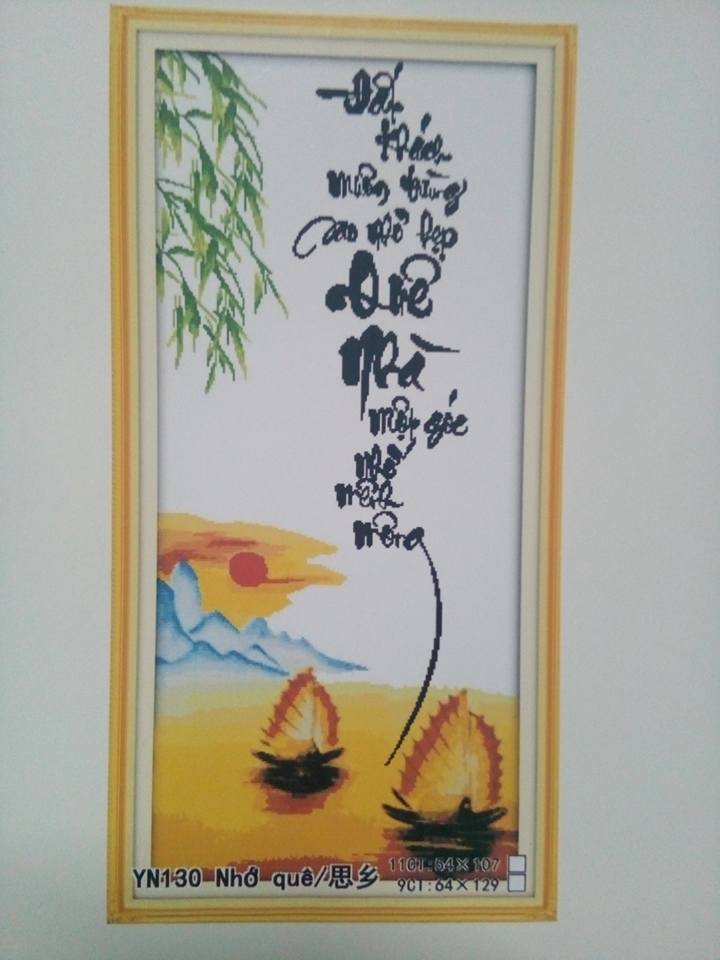 Đất
khách
muôn trùng
sao nhỏ hẹp
Quê
Nhà
một góc
nhớ
mênh
mông
YN130 Nhớ quê/思乡
11CT:54×107
9CT:64×129